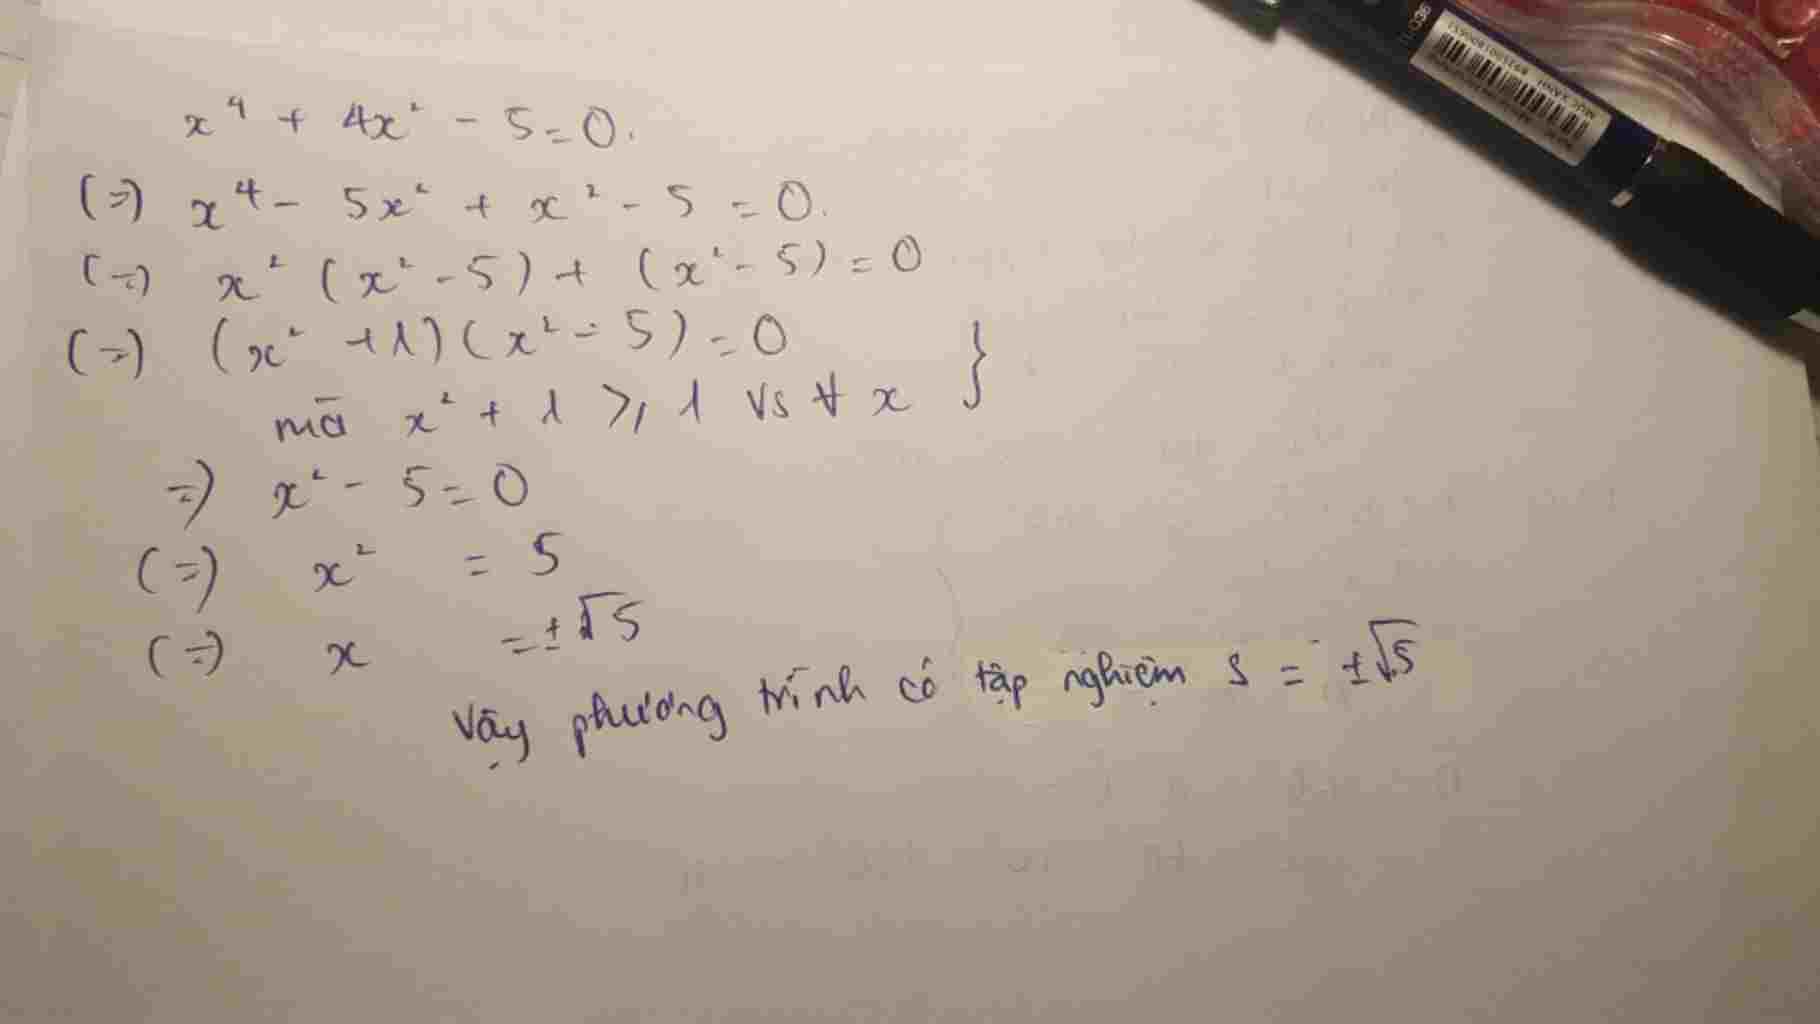 x⁴ + 4x² - 5 = 0.
(=) x⁴ - 5x² + x² - 5 = 0.
(=) x² (x² - 5) + (x² - 5) = 0
(=) (x² + 1) (x² - 5) = 0 }
mà x² + 1 ⩾ 1 vs ∀ x
=) x² - 5 = 0
(=) x² = 5
(=) x = ±√5
Vậy phương trình có tập nghiệm S = ±√5